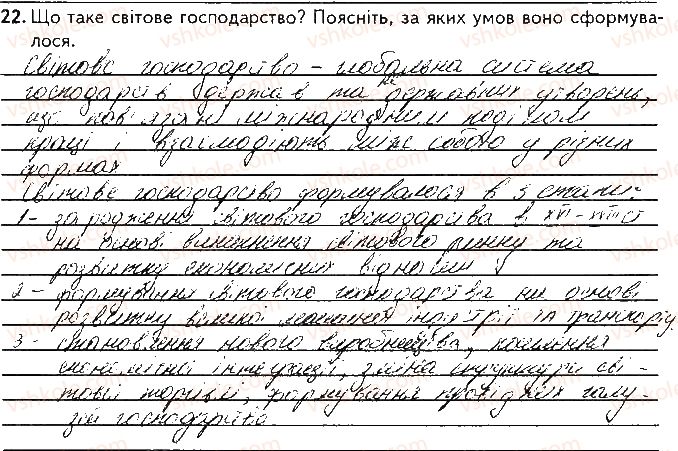 22. Що таке світове господарство? Поясніть, за яких умов воно сформува-
лося.
Світове господарство – глобальна система
господарств держав та не державних утворень,
що пов'язані міжнародним поділом
праці і взаємодіють між собою у різних
формах
Світове господарство формувалося в 3 етапи:
1 - зародження світового господарства в XVI - XVIII ст
на основі виникнення світового ринку та
розвитку економічних відносин
2 - формування світового господарства на основі
розвитку великої машинної індустрії та транспорту
3 - становлення нового виробництва, посилення
економічної інтеграції, зміна структури сві-
тової торгівлі, формування провідних галу-
зей господарства.